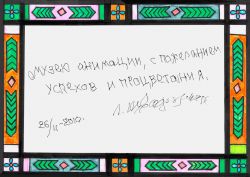 Музею анимации, с пожеланием
успехов и процветания.
Л.
26/II-2010.